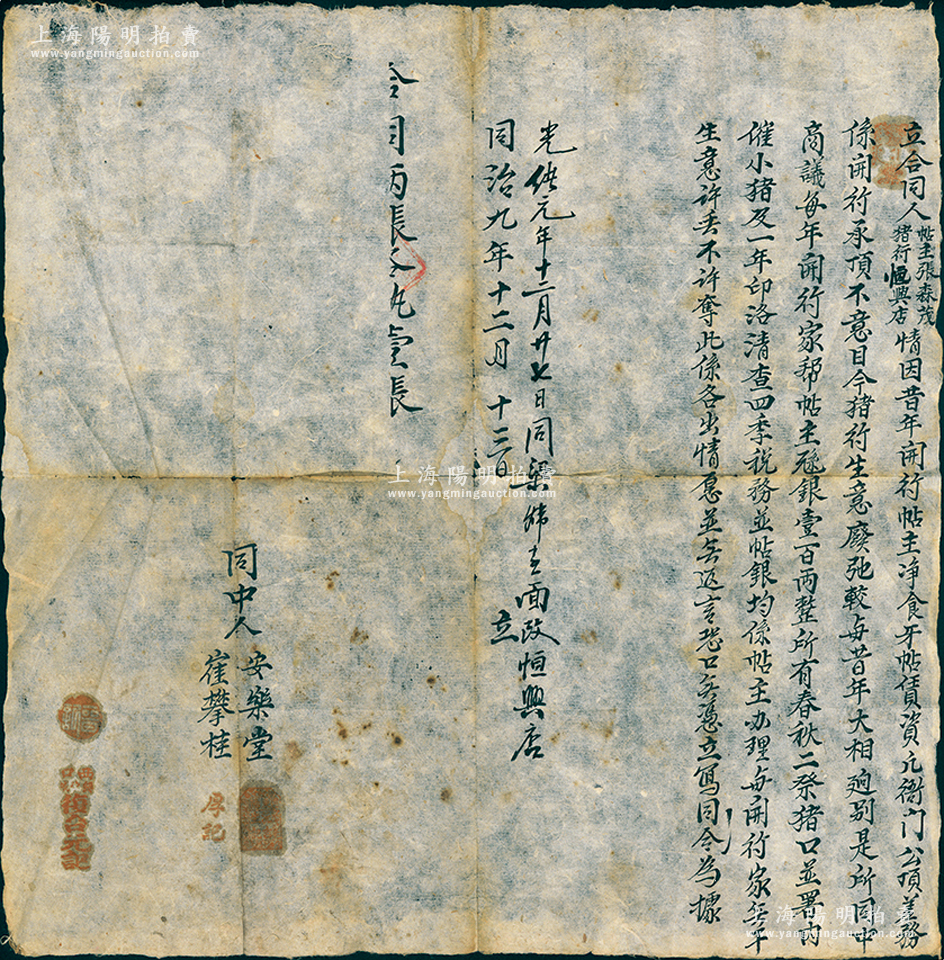 立合同人帖主張森茂猪行恒興店情因昔年開行帖主净食牙帖賃資凢衙门公項差務
係開行承頂不意目今猪行生意廢弛較每昔年大相廻别是所同中
商議每年開行家帮帖主殛銀壹百两整所有春秋二祭猪口並署内
催小猪及一年印洛清查四季税務並帖銀均係帖主办理每開行家無干
生意許丢不許奪此係各出情愿並無返言恐口無憑立寫同合為據
光绪元年十二月廿七日同梁 面改恒興店
同治九年十二月十三日 立
合同两長 壹長
同中人 安樂堂
崔攀桂
厚記
上海陽明拍賣
www.yangmingauction.com
上海陽明拍賣
www.yangmingauction.com
上海陽明拍賣
www.yangmingauction.com